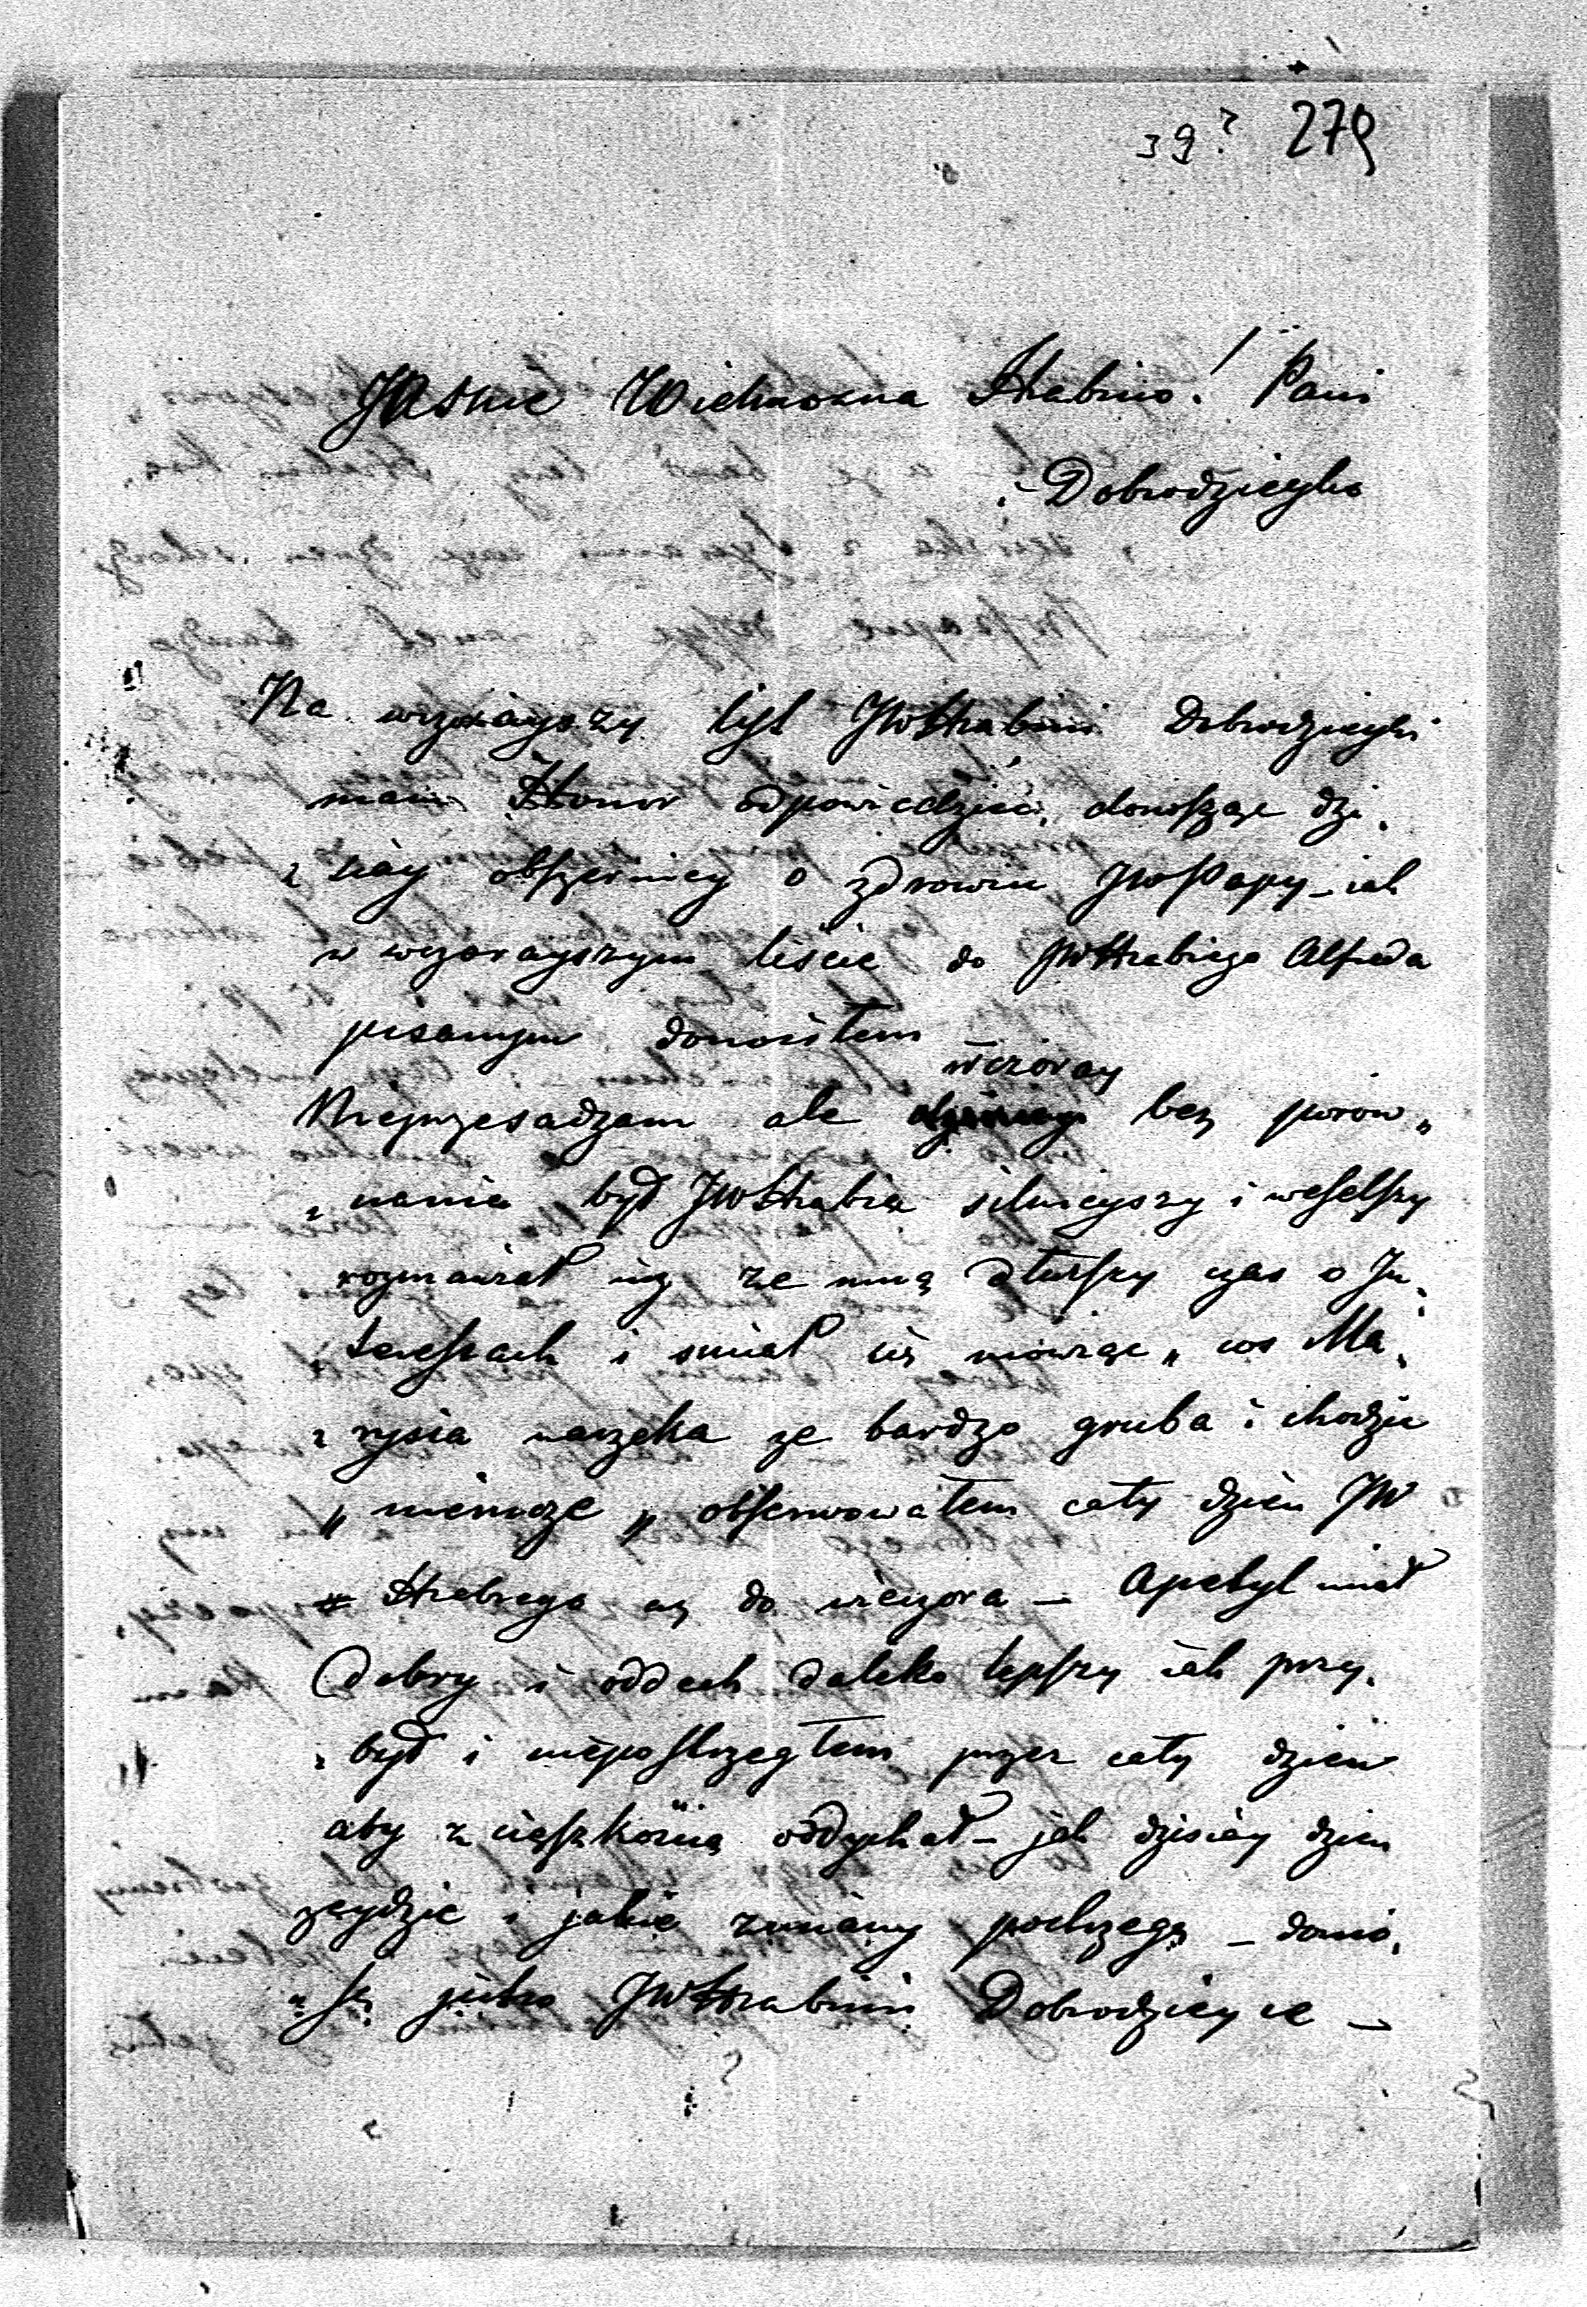 39? 279
JAsnie Wielmożna Hrabino! Pani
i Dobrodzieyko
Na wczorayszy lyst JWHrabini Dobrodzieyki
mam Honor odpowiedzieć, donosząc dzi„
„siay obszerniey o zdrowiu JWPapy – iak
w wczorayszym liście do JWHrabiego Alfreda
pisanym donosiłem
wczoray
Nieprzesadzam ale bez porów„
„nania był JWHrabia silnieyszy i weselszy
rozmawiał się ze mną dłuszy czas o In„
„tereszach i smiał się mówiąc „ cos Ma„
„rysia narzeka ze bardzo gruba i chodzić
„ niemoze „ obserwowałem cały dzień JW
Hrabiego az do wieczora – Apetyt miał
dobry i oddech daleko lepszy iak przy„
„był i niepostrzegłem przez cały dzień
aby z cięszkością oddychał – jak dzisiay dzien
zeydzie i jakie zmiany postrzegę – donio„
„sę jutro JWHrabini Dobrodzieyce –